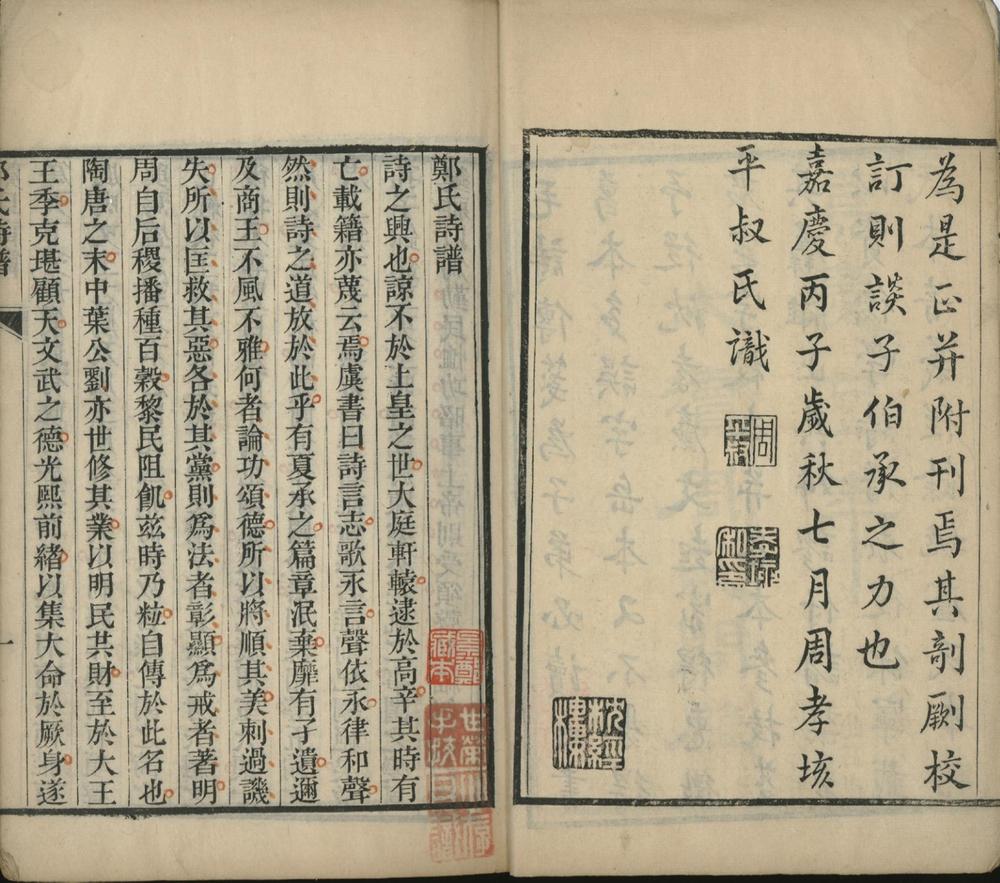 為是正并附刊焉其剞劂校
訂則談子伯承之力也
嘉慶丙子歲秋七月周孝垓
平叔氏識
枕經樓
鄭氏詩譜
詩之興也諒不於上皇之世大庭軒轅逮於高辛其時有
亡載籍亦蔑云焉虞書曰詩言志歌永言聲依永律和聲
然則詩之道放於此乎有夏承之篇章泯棄靡有孑遺邇
及商王不風不雅何者論功頌德所以將順其美刺過譏
失所以匡救其惡各於其黨則爲法者彰顯爲戒者著明
周自后稷播種百穀黎民阻飢茲時乃粒自傳於此名也
陶唐之末中葉公劉亦世修其業以明民共財至於大王
王季克堪顧天文武之德光熙前緒以集大命於厥身遂
鄭氏詩譜
一
景鄭藏本